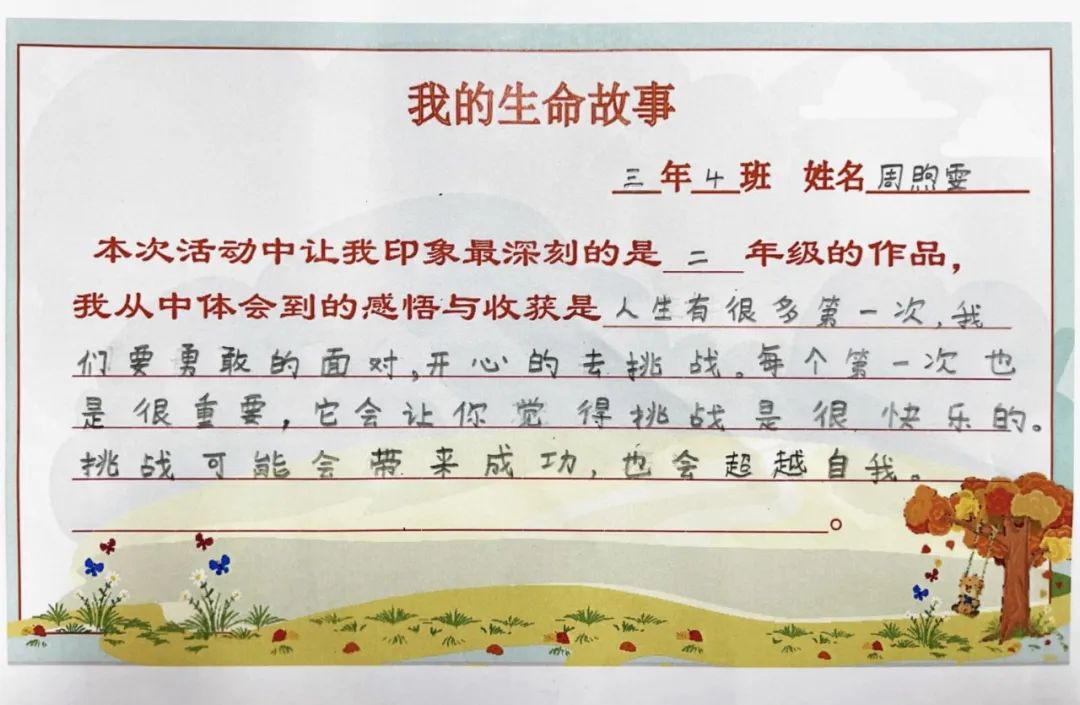 我的生命故事
三年4班 姓名周煦雯
本次活动中让我印象最深刻的是二年级的作品，
我从中体会到的感悟与收获是人生有很多第一次，我
们要勇敢的面对，开心的去挑战。每个第一次也
是很重要，它会让你觉得挑战是很快乐的。
挑战可能会带来成功，也会超越自我。
。